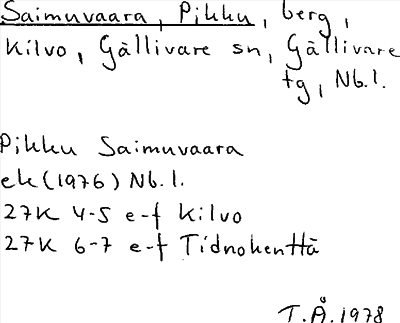 Saimuvaara, Pikku, berg,
Kilvo, Gällivare sn, Gällivare
tg, Nb.l.
Pikku Saimuvaara
ek (1976) Nb.l.
27K 4-5 e-f Kilvo
27K 6-7 e-f Tidnokenttä
T.Å. 1978